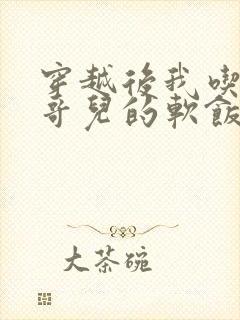 穿越後我喫
哥兒的軟飯
大茶碗